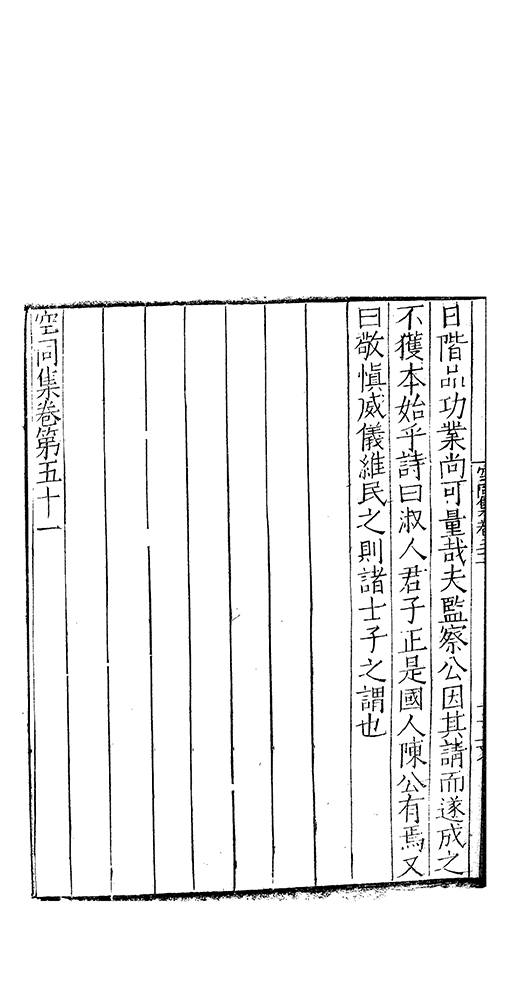 日階品功業尚可量哉夫監察公因其請而遂成之
不獲本始乎詩曰淑人君子正是國人陳公有焉又
曰敬慎威儀維民之則諸士子之謂也
空同集卷第五十一